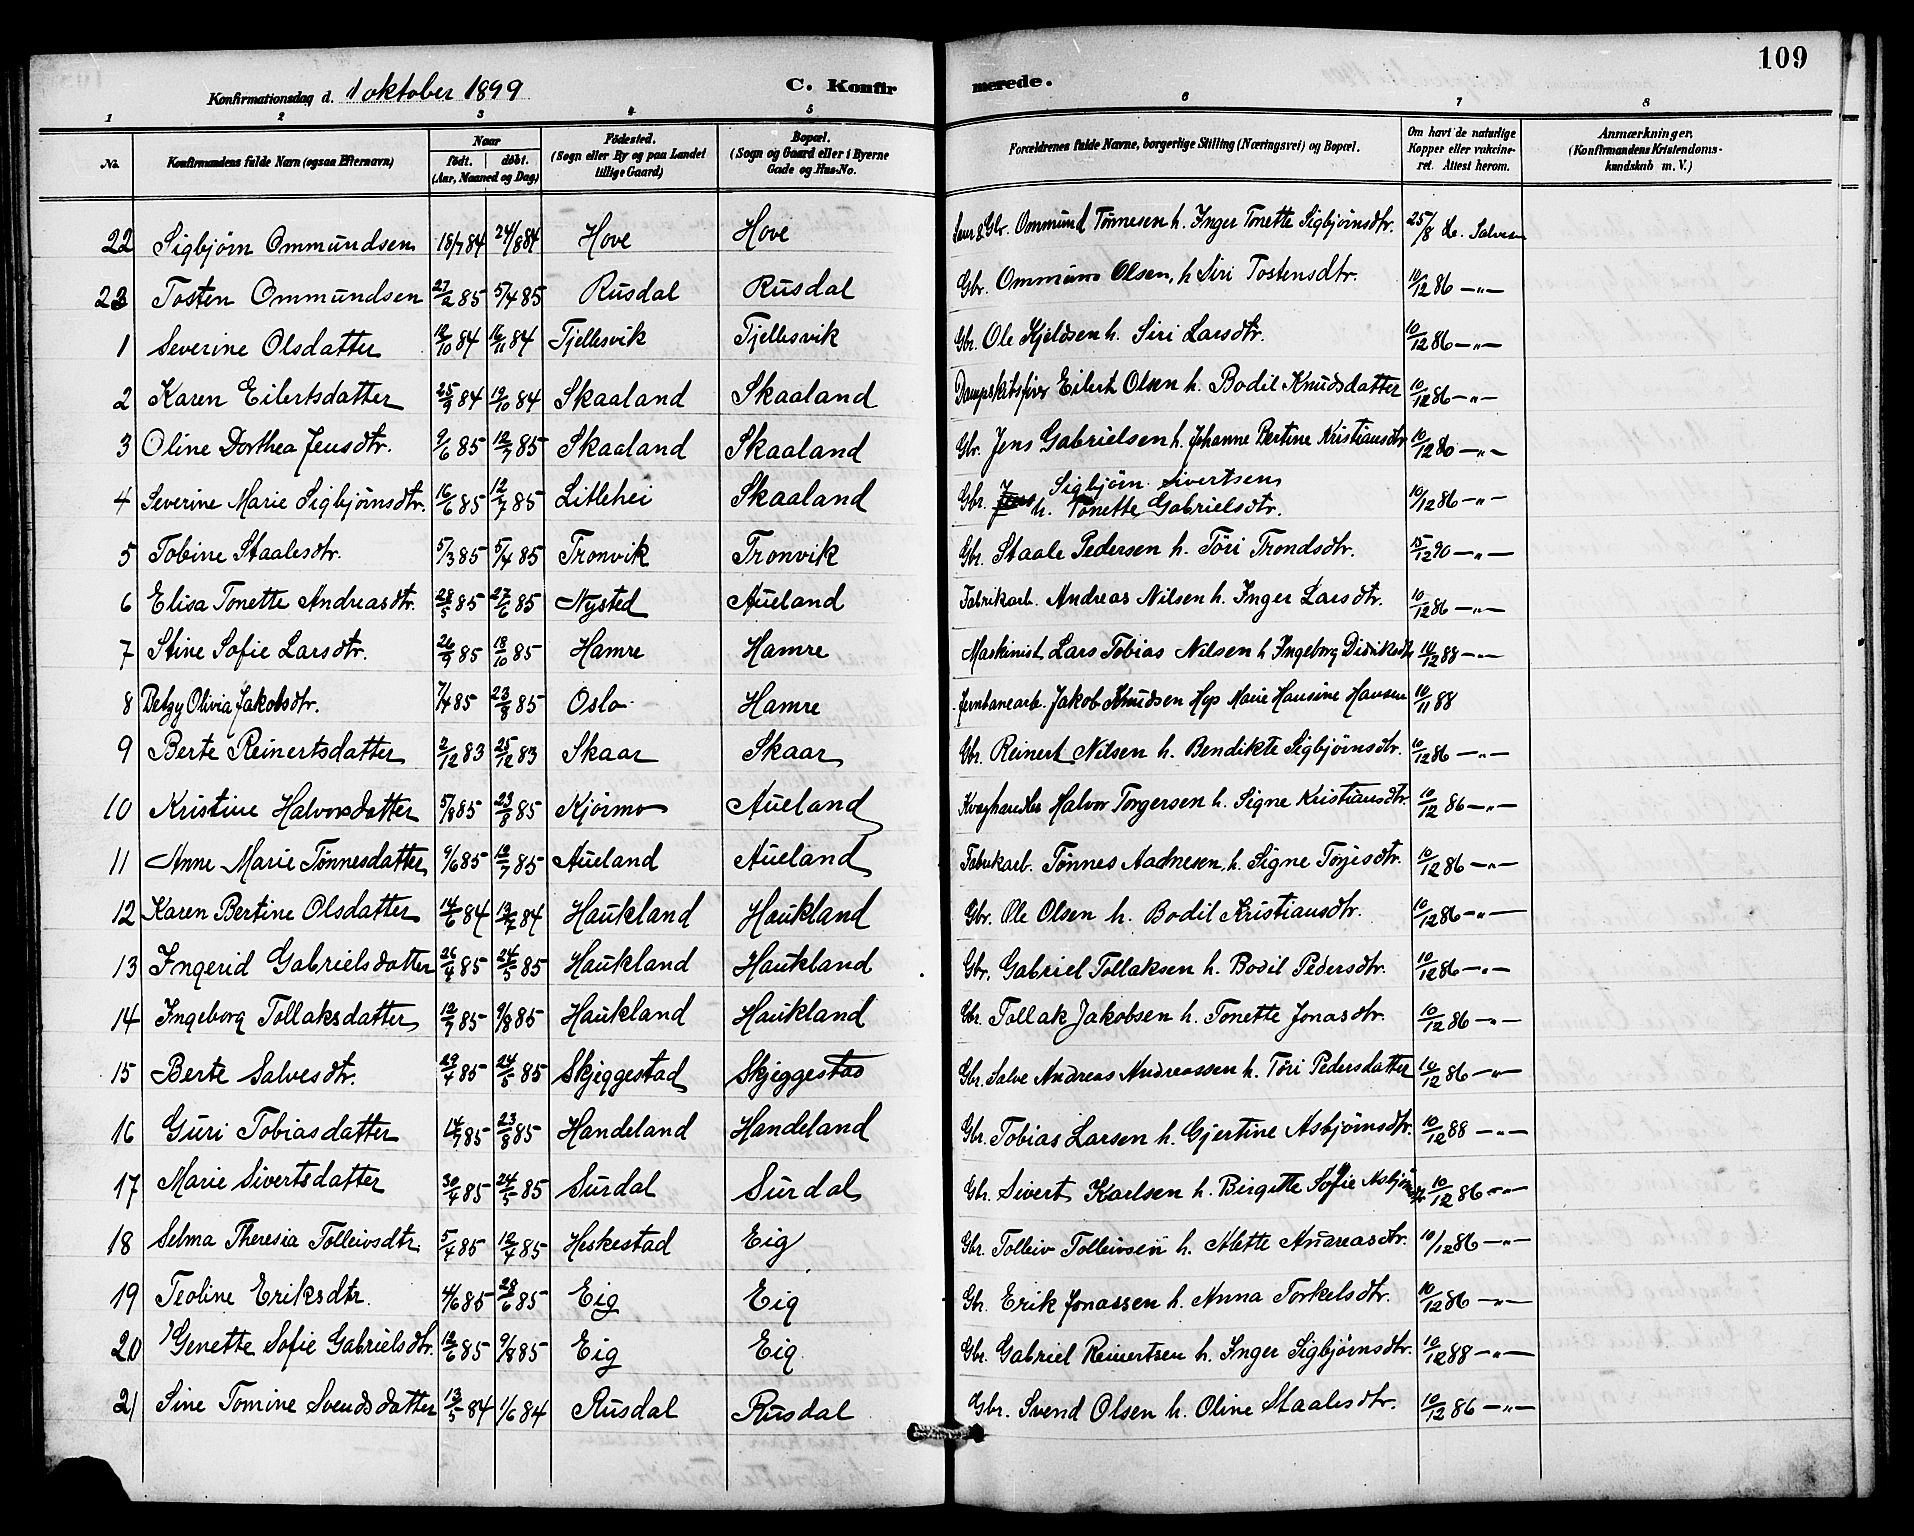 109
Konfirmationsdag d. 1 oktober 1899 C. Konfirmerede.
1 2 3 4 5 6 7 8
No. Konfirmandens fulde Navn (ogsaa Efternavn) Naar født. døbt. (Aar, Maaned og Dag) Fødested. (Sogn eller By og paa Landet tillige Gaard) Bopæl. (Sogn og Gaard eller i Byerne Gade og Hus-No. Forældrenes fulde Navne, borgerlige Stilling (Næringsvei) og Bopæl. Om havt de naturlige Kopper eller vakcineret. Attest herom. Anmærkninger. (Konfirmandens Kristendomskundskab m. V.)
22 Sigbjørn Ommundsen 18/7 84 24/8 84 Hove Hove Gbr. Ommund Tønnesen h. Inger Tonette Sigbjørnsdtr. 25/8 Salvesen
23 Tosten Ommundsen 27/2 85 5/4 85 Rusdal Rusdal Gbr. Ommund Olsen, h Siri Tostensdtr. 10/12 86 —"—
1 Severine Olsdatter 12/10 84 16/11 84 Tjellesvik Tjellesvik Gbr. Ole Kjeldsen h. Siri Larsdtr. 10/12 86 —"—
2 Karen Eilertsdatter 25/9 84 19/10 84 Skaaland Skaaland Eilert Olsen h. Bodil Knudsdatter 10/12 86 —"—
3 Oline Dorthea Jensdtr. 9/6 85 12/7 85 Skaaland Skaaland Gbr. Jens Gabrielsen h. Johanne Bertine Kristiansdtr 10/12 86 —"—
4 Severine Marie Sigbjørnsdtr. 16/6 85 12/7 85 Litlehei Skaaland Gbr. Sigbjørn Sivertsen h. Tonette Gabrielsdtr. 10/12 86 —"—
5 Tobine Staalesdtr. 5/3 85 5/4 85 Tronvik Tronvik Gbr. Staale Pedersen h. Tøri Trondsdtr. 15/12 90 —"—
6 Elisa Tonette Andreasdtr. 28/5 85 27/6 85 Nysted Aueland Fabrikarb. Andreas Nilsen h. Inger Larsdtr. 10/12 86 —"—
7 Stine Sofie Larsdtr. 26/9 85 18/10 85 Hamre Hamre Maskinist Lars Tobias Nilsen h Ingeborg Didriksdtr 10/12 88 —"—
8 Betzy Olivia Jakobsdtr. 7/4 85 23/8 85 Oslo Hamre Jernbanearb. Jakob Knudsen Hop Marie Hansine Hansen 10/11 88
9 Berte Reinertsdatter 2/12 83 25/12 83 Skaar Skaar Gbr. Reinert Nilsen h. Bendikte Sigbjørnsdtr. 10/12 86 —"—
10 Kristine Halvorsdatter 5/8 85 23/8 85 Kjørmo Aueland Kvæghandler Halvor Torgersen h. Signe Kristiansdtr. 10/12 86 —"—
11 Anne Marie Tønnesdatter 9/6 85 19/7 85 Aueland Aueland Fabrikarb. Tønnes Aadnesen, h. Signe Torjesdtr. 10/12 86 —"—
12 Karen Bertine Olsdatter 14/6 84 13/7 84 Haukland Haukland Gbr. Ole Olsen h. Bodil Kristiansdtr. 10/12 86 —"—
13 Ingerid Gabrielsdatter 26/4 85 24/5 85 Haukland Haukland Gbr. Gabriel Tollaksen h. Bodil Pedersdtr. 10/12 86 —"—
14 Ingeborg Tollaksdatter 12/7 85 9/8 85 Haukland Haukland Gbr. Tollak Jakobsen h. Tonette Jonasdtr. 10/12 86 —"—
15 Berte Salvesdtr. 29/4 85 24/5 85 Skjeggestad Skjeggestad Gbr. Salve Andreas Andreassen h. Tøri Pedersdatter 10/12 86 —"—
16 Guri Tobiasdatter 14/7 85 23/8 85 Handeland Handeland Gbr. Tobias Larsen h. Gjertine Asbjørnsdtr. 10/12 88 —"—
17 Marie Sivertsdatter 30/4 85 24/5 85 Surdal Surdal Gbr. Sivert Karlsen h. Birgitte Sofie Asbjørnsdtr 10/12 86 —"—
18 Selma Theresia Tolleivsdtr. 5/4 85 12/4 85 Heskestad Eig Gbr. Tolleiv Tolleivsen h. Alette Andreasdtr. 10/12 86 —"—
19 Teoline Eriksdtr. 4/6 85 28/6 85 Eig Eig Gbr. Erik Jonassen h. Anna Torkelsdtr. 10/12 86 —"—
20 Genette Sofie Gabrielsdtr. 12/6 85 9/8 85 Eig Eig Gbr. Gabriel Reinertsen h. Inger Sigbjørnsdtr. 10/12 88 —"—
21 Sine Tomine Svendsdatter 13/5 84 1/6 84 Rusdal Rusdal Gbr. Svend Olsen h. Oline Staalesdtr. 10/12 86 —"—